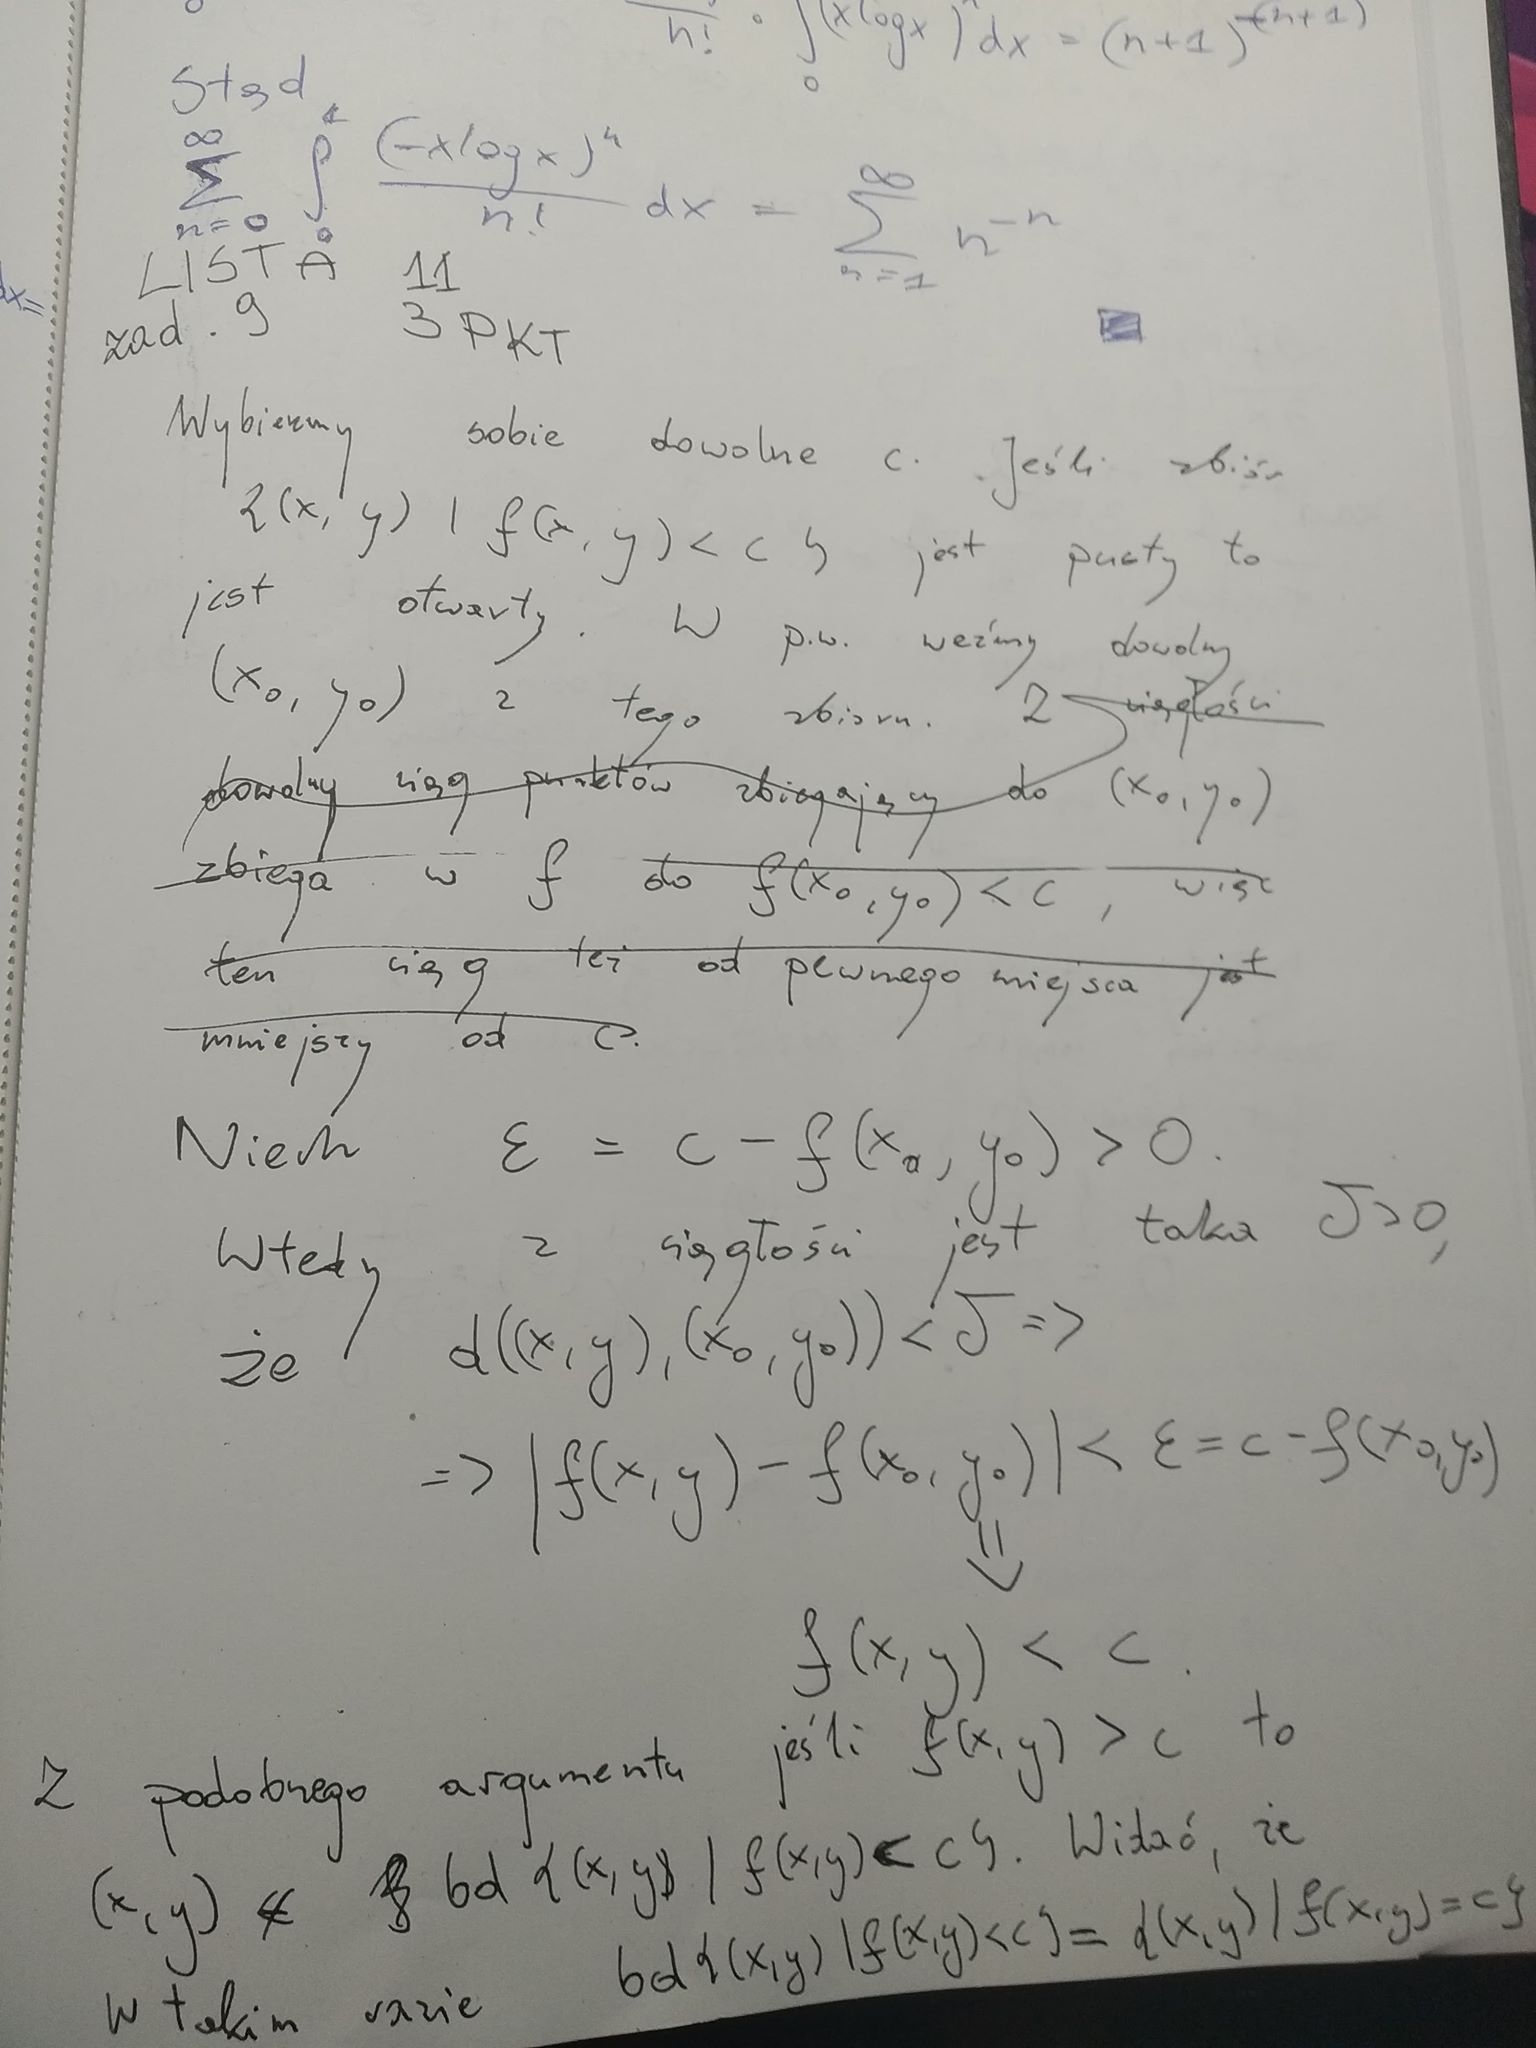 n! · ∫(x log x)^n dx = (n+1)^-(n+1)
0
Stąd
∞ 1
∑ ∫ (-x log x)^n / n! dx = ∑ n^-n
n=0 0 ∞ n=1
LISTA 11
zad. 9 3 PKT
dx=
Wybierzmy sobie dowolne c. Jeśli zbiór
{(x, y) | f(x, y) < c} jest pusty to
jest otwarty. W p.w. weźmy dowolny
(x₀, y₀) z tego zbioru. Z ciągłości
dowolny ciąg punktów zbiegający do (x₀, y₀)
zbiega w f do f(x₀, y₀) < c, więc
ten ciąg też od pewnego miejsca jest
mniejszy od c.
Niech ε = c - f(x₀, y₀) > 0.
Wtedy z ciągłości jest taka δ>0,
że d((x, y), (x₀, y₀)) < δ =>
=> |f(x, y) - f(x₀, y₀)| < ε = c - f(x₀, y₀)
⇓
f(x, y) < c.
Z podobnego argumentu jeśli f(x, y) > c to
(x, y) ∉ bd {(x, y) | f(x, y) < c}. Widać, że
w takim razie bd {(x, y) | f(x, y) < c} = {(x, y) | f(x, y) = c}